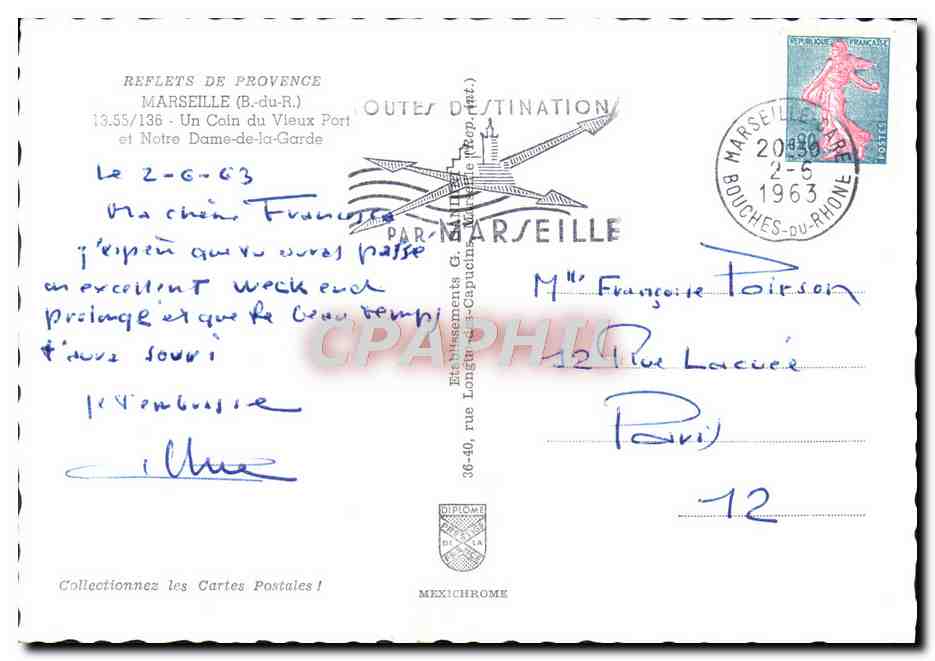 REFLETS DE PROVENCE
MARSEILLE (B.-du-R.)
13.55/136 - Un Coin du Vieux Port
et Notre Dame-de-la-Garde
Le 2-6-63
Ma chère Françoise
j'espère que tu auras passé
un excellent week end
prolongé et que le beau temps
t'aura souri
je t'embrasse
Collectionnez les Cartes Postales !
TOUTES DESTINATIONS
PAR MARSEILLE
Etablissements G.
36-40, rue Longue-des-Capucins, Marseille (Rep. Int.)
DIPLOME
PRESTIGE
DE LA
FRANCE
MEXICHROME
REPUBLIQUE FRANÇAISE
POSTES
MARSEILLE-GARE
20-30
2-6
1963
BOUCHES-DU-RHONE
Mlle Françoise Poirson
12 Rue Lacuée
Paris
12
CPAPHIL